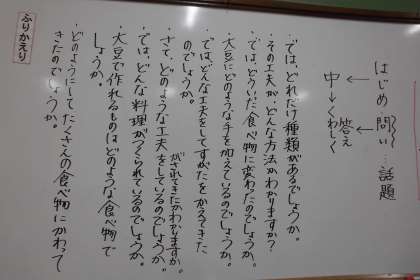 はじめ 問い…話題
答え
中→くわしく
・では、どれだけ種類があるでしょうか。
・その工夫が、どんな方法かわかりますか?
・では、どういった食べ物に変わったのでしょうか。
・大豆にどのような手を加えているのでしょうか。
・では、どんな工夫をしてすがたをかえてきた
のでしょうか。
がされてきたかわかりますか。
・さて、どのような工夫をしているのでしょうか。
・では、どんな料理がつくられているのでしょうか。
・大豆で作れるものはどのような食べ物で
しょうか。
・どのようにしてたくさんの食べ物にかわって
きたのでしょうか。
ふりかえり